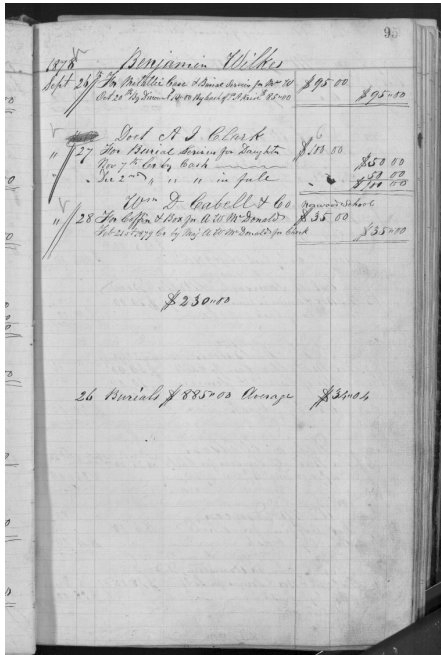 95
1878 Benjamin Wilkes
Sept 26 For Metallic Case & Burial Service for Mrs W $95 00
Oct 20th By Discount $10.00 By Cash 85.00 $95.00
Doct A J Clark
" 27 For Burial Services for Daughter $100.00
Nov 7th Cr by Cash $50 00
" Dec 2nd " " " in full 50 00
$100 00
Wm D. Cabell & Co Norwood School
" 28 For Coffin & Box for A W McDonald $35 00
Feb 1879 Cr by Maj A W McDonald for Clark $35.00
$230.00
26 Burials $885.00 Average $34.04